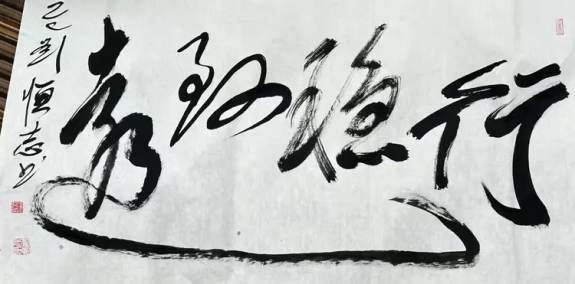 行稳致远
刘恒志书